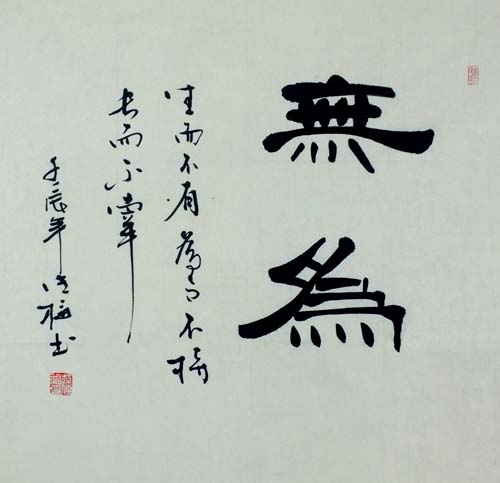 無為
生而不有為而不恃
長而不宰
壬辰年書